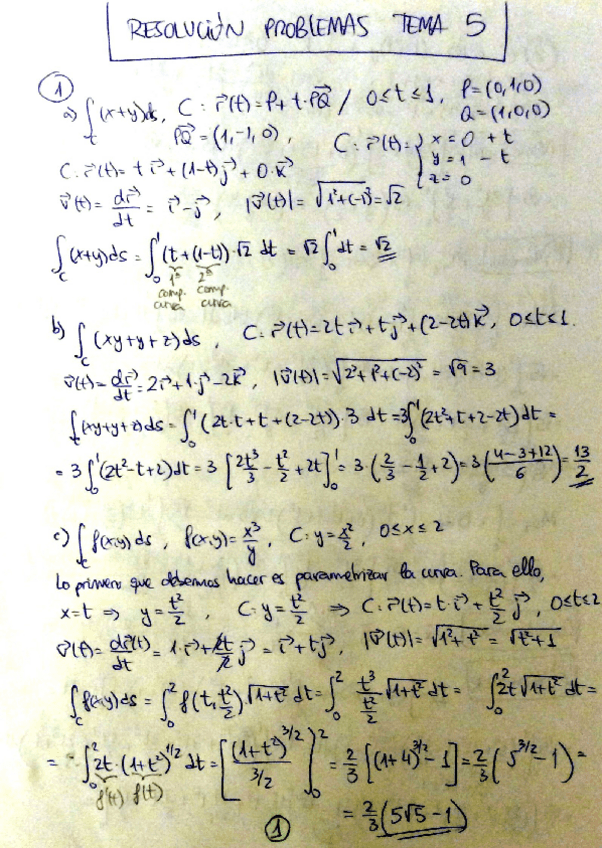 RESOLUCIÓN PROBLEMAS TEMA 5
① a) ∫_C (x+y)ds, C: r⃗(t)=P+t·PQ⃗ / 0≤t≤1, P=(0,1,0)
Q=(1,0,0)
PQ⃗=(1,-1,0), C: r⃗(t)= { x=0+t
y=1-t
z=0
C: r⃗(t)= t i⃗+(1-t)j⃗+0·k⃗
v⃗(t)= dr⃗/dt = i⃗-j⃗, |v⃗(t)|=√(1²+(-1)²)=√2
∫_C (x+y)ds=∫₀¹(t+(1-t))·√2 dt = √2∫₀¹dt=√2
1ª comp. curva 2ª comp curva
b) ∫_C (xy+y+z)ds, C: r⃗(t)=2t i⃗+t j⃗+(2-2t)k⃗, 0≤t≤1.
v⃗(t)= dr⃗/dt = 2i⃗+1·j⃗-2k⃗, |v⃗(t)|=√(2²+1²+(-2)²) = √9=3
∫_C (xy+y+z)ds=∫₀¹(2t·t+t+(2-2t))·3 dt=3∫₀¹(2t²+t+2-2t)dt=
=3∫₀¹(2t²-t+2)dt=3[2t³/3 - t²/2 +2t]₀¹=3·(2/3 - 1/2 +2)=3((4-3+12)/6)=13/2
c) ∫_C f(x,y)ds, f(x,y)=x³/y, C: y=x²/2, 0≤x≤2
Lo primero que debemos hacer es parametrizar la curva. Para ello,
x=t ⇒ y=t²/2, C: y=t²/2 ⇒ C: r⃗(t)=t·i⃗+t²/2 j⃗, 0≤t≤2
v⃗(t)=dr⃗(t)/dt=1·i⃗+2t/2 j⃗=i⃗+t j⃗, |v⃗(t)|=√(1²+t²)=√(t²+1)
∫_C f(x,y)ds=∫₀² f(t,t²/2)·√(1+t²) dt=∫₀² t³/(t²/2) √(1+t²) dt= ∫₀² 2t√(1+t²) dt=
=∫₀² 2t·(1+t²)^(1/2) dt=[(1+t²)^(3/2)/(3/2)]₀²=2/3[(1+4)^(3/2)-1]=2/3(5^(3/2)-1)=
f'(t) f(t)
=2/3(5√5-1)
①